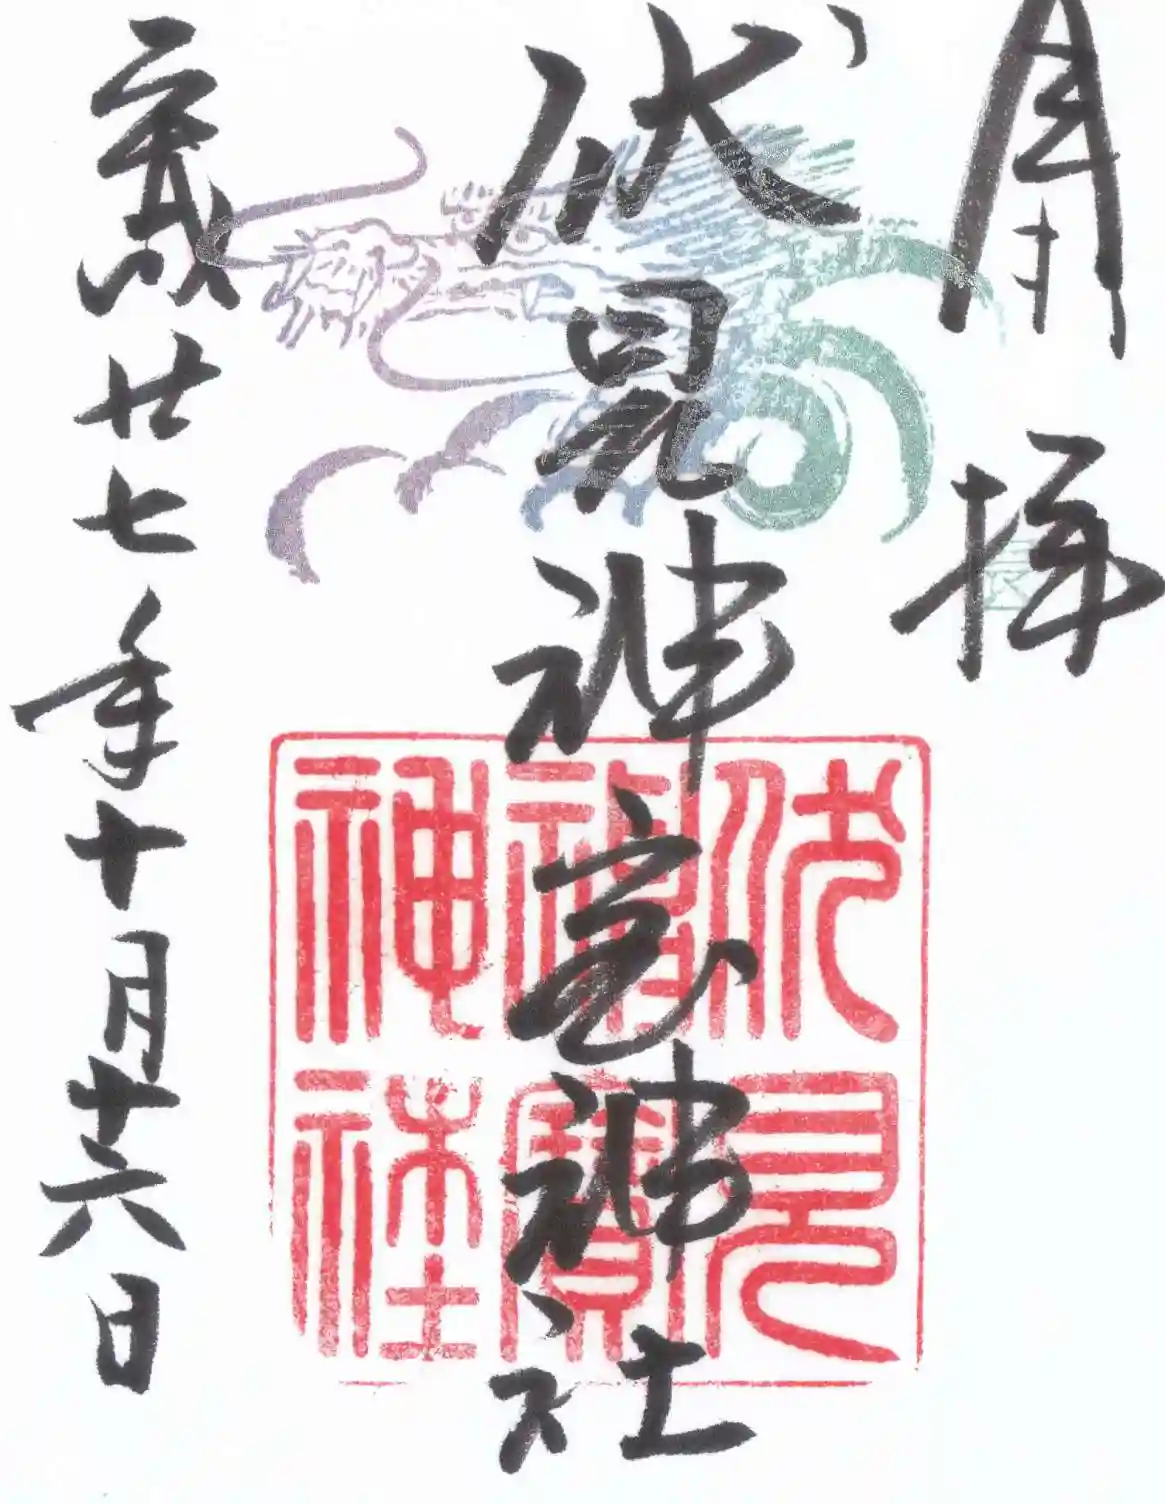 奉拝
伏見神宝神社
平成廿七年十月十六日
伏見
神寶
神社